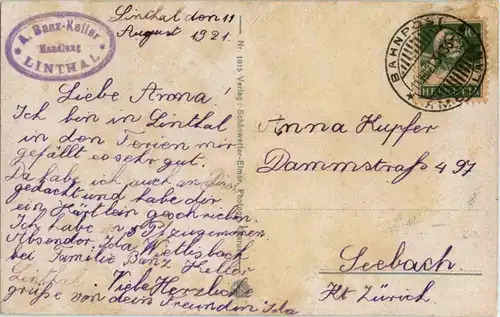 A. Banz-Keller
Handlung
LINTHAL
Linthal den 11
August 1921.
Liebe Anna!
Ich bin in Linthal
in den Ferien mir
gefällt es sehr gut.
Da habe ich auch an Dich
gedacht und habe dir
ein Kärtlein geschrieben.
Ich habe Pfd zugenomen
Absendor. Ida Wietlisbach
bei Familie Banz Keller
Linthal. Viele Herzliche
grüße von dein Freundin Ida
Nr. 1015 Verlag Schönwetter-Elmer, Photogr.
BAHNPOST
AMBULANT
HELVETIA
10
Anna Kupfer
Dammstraß 497
Seebach.
Kt Zürich.